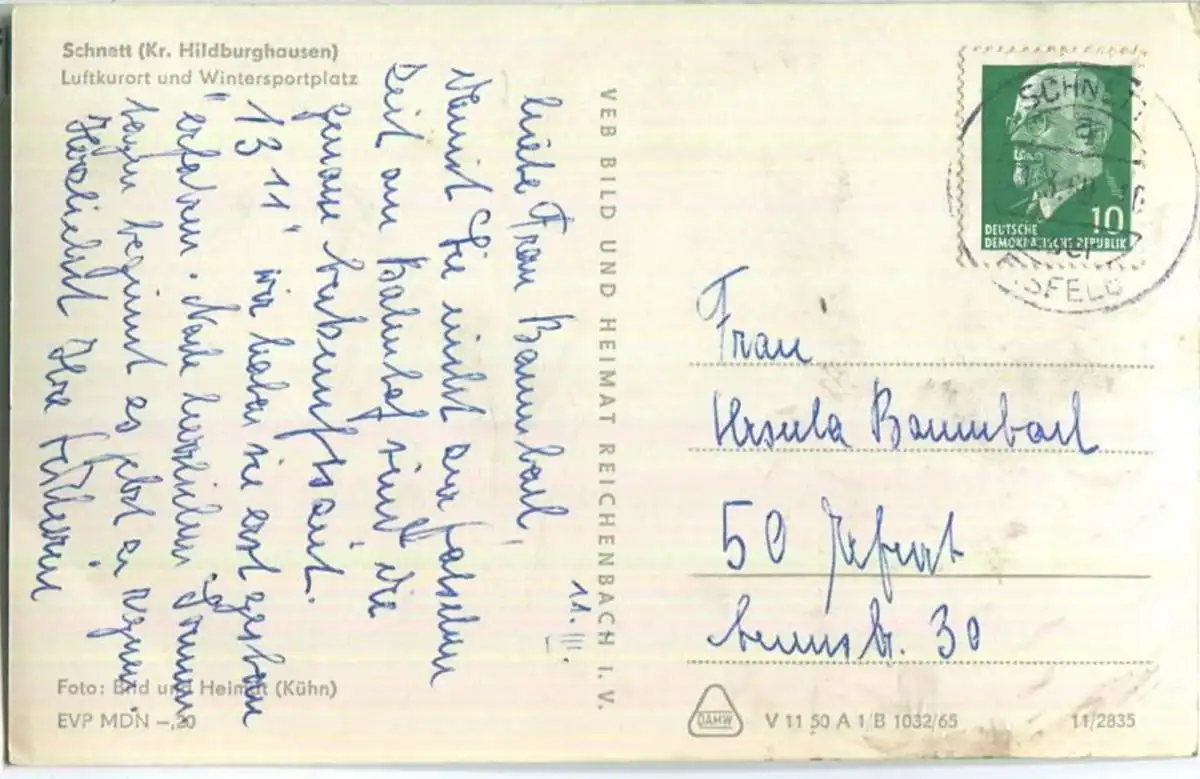 Schnett (Kr. Hildburghausen)
Luftkurort und Wintersportplatz
11. III.
Liebe Frau Baumbach,
damit Sie nicht zur falschen
Zeit am Bahnhof sind die
genaue Ankunftszeit.
"13 11" wir haben sie erst gestern
erfahren. Nach herrlichen
tagen beginnt es jetzt zu regnen.
Herzlichst Ihre
VEB BILD UND HEIMAT REICHENBACH I. V.
10
DEUTSCHE
DEMOKRATISCHE REPUBLIK
SCHNETT
EISFELD
Frau
Ursula Baumbach
50 Erfurt
30
Foto: Bild und Heimat (Kühn)
EVP MDN –,20
DAMW
V 11 50 A 1/B 1032/65
11/2835